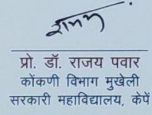 प्रो. डॉ. राजय पवार
कोंकणी विभाग मुखेली
सरकारी महाविद्यालय, केपें